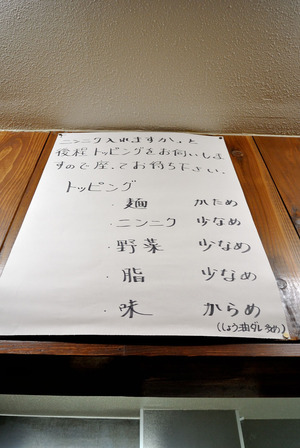 ニンニク入れますか。と
後程トッピングをお伺いしま
すので座ってお待ち下さい。
トッピング
・麺 かため
・ニンニク 少なめ
・野菜 少なめ
・脂 少なめ
・味 からめ
(しょう油ダレ多め)